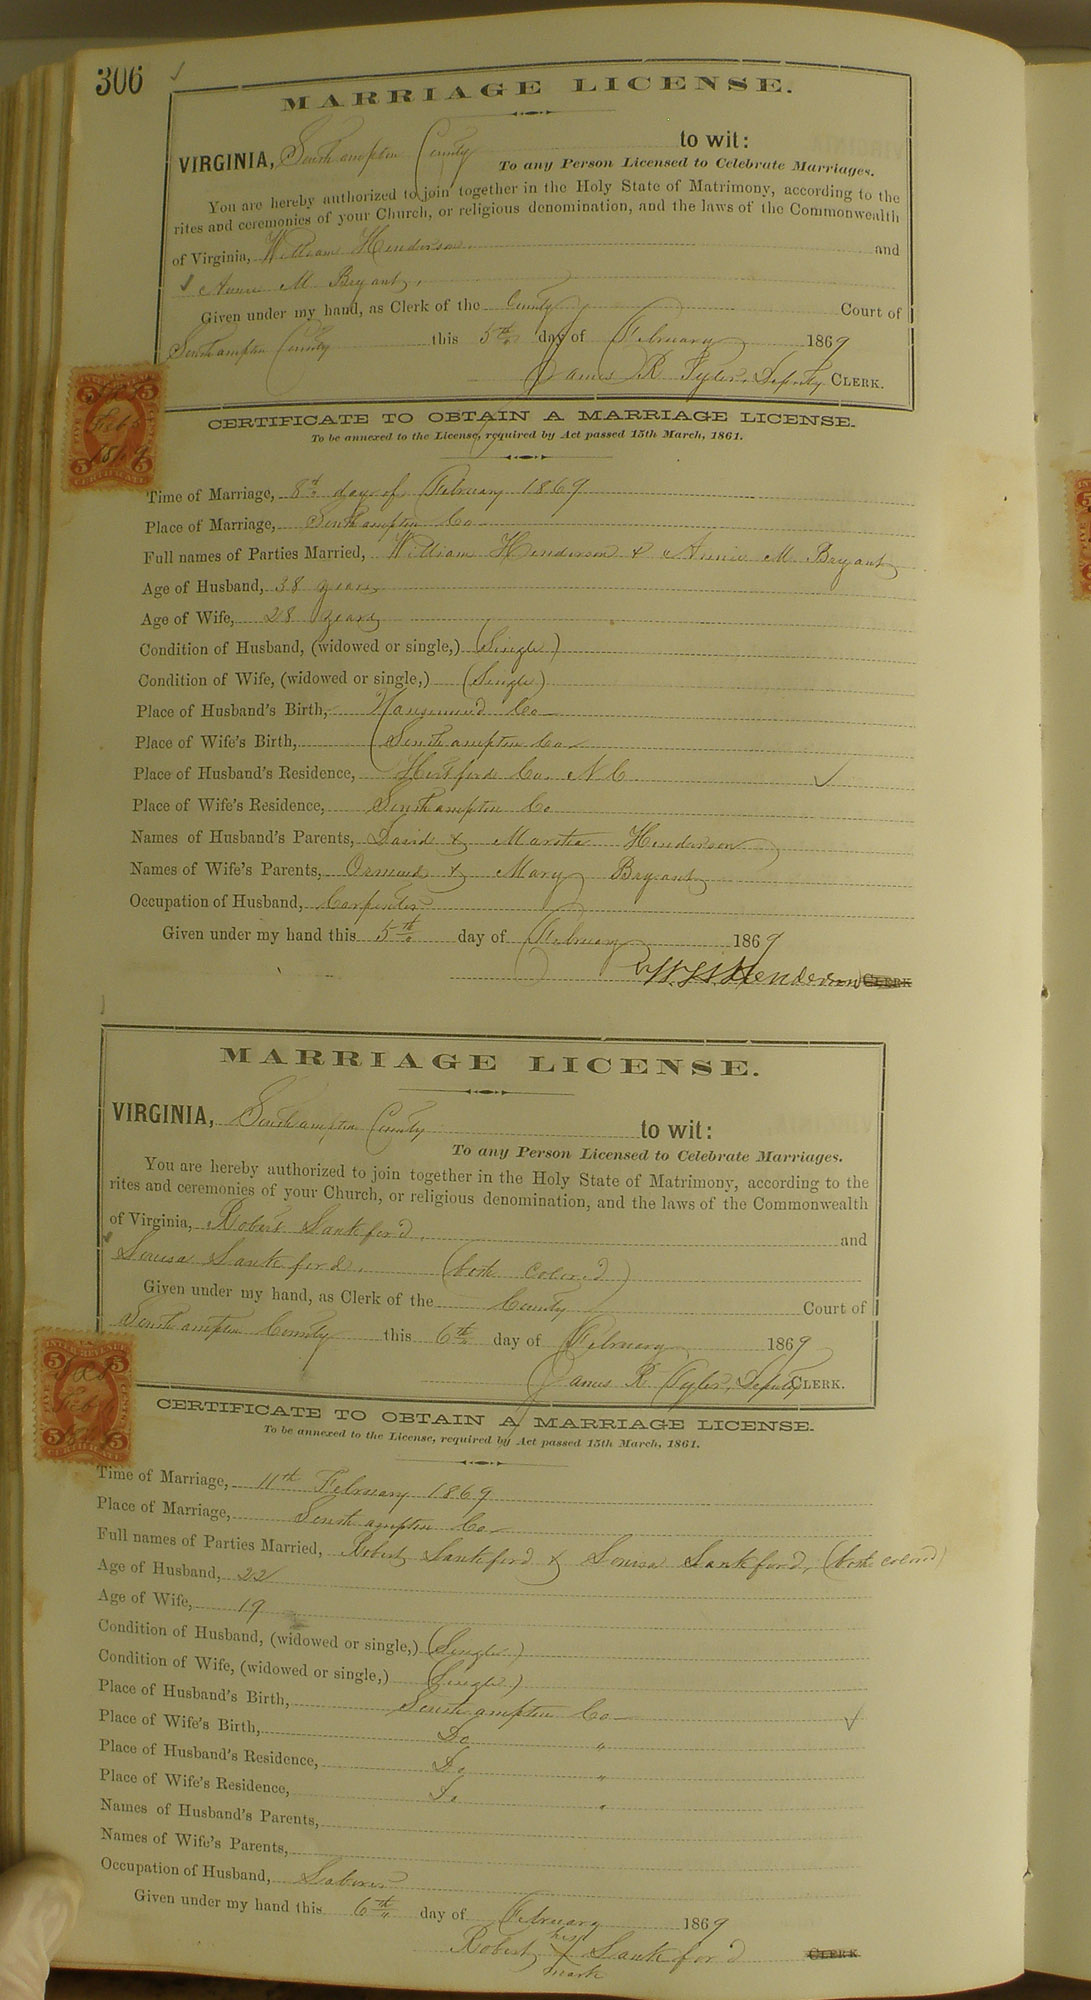 306
MARRIAGE LICENSE.
VIRGINIA, Southampton County to wit:
To any Person Licensed to Celebrate Marriages.
You are hereby authorized to join together in the Holy State of Matrimony, according to the
rites and ceremonies of your Church, or religious denomination, and the laws of the Commonwealth
of Virginia, William Henderson and
Annie M Bryant,
Given under my hand, as Clerk of the County Court of
Southampton County this 5th day of February 1869
James R Tyler, Deputy CLERK.
FIVE CENTS
CERTIFICATE
5 5
5 5
Feb 5
1869
CERTIFICATE TO OBTAIN A MARRIAGE LICENSE.
To be annexed to the License, required by Act passed 15th March, 1861.
Time of Marriage, 8th day of February 1869
Place of Marriage, Southampton Co
Full names of Parties Married, William Henderson & Annie M Bryant
Age of Husband, 38 years
Age of Wife, 28 years
Condition of Husband, (widowed or single,) (Single)
Condition of Wife, (widowed or single,) (Single)
Place of Husband's Birth, Nansemond Co
Place of Wife's Birth, Southampton Co
Place of Husband's Residence, Hertford Co. N C
Place of Wife's Residence, Southampton Co
Names of Husband's Parents, David & Martha Henderson
Names of Wife's Parents, Ormond & Mary Bryant
Occupation of Husband, Carpenter
Given under my hand this 5th day of February 1869
Henderson CLERK
MARRIAGE LICENSE.
VIRGINIA, Southampton County to wit:
To any Person Licensed to Celebrate Marriages.
You are hereby authorized to join together in the Holy State of Matrimony, according to the
rites and ceremonies of your Church, or religious denomination, and the laws of the Commonwealth
of Virginia, Robert Lankford, and
Louisa Lankford, (both colored)
Given under my hand, as Clerk of the County Court of
Southampton County this 6th day of February 1869
James R Tyler, Deputy CLERK.
INTER. REVENUE
FIVE CENTS
CERTIFICATE
5 5
5 5
Feb 6
CERTIFICATE TO OBTAIN A MARRIAGE LICENSE.
To be annexed to the License, required by Act passed 15th March, 1861.
Time of Marriage, 11th February 1869
Place of Marriage, Southampton Co
Full names of Parties Married, Robert Lankford & Louisa Lankford, (both colored)
Age of Husband, 22
Age of Wife, 19
Condition of Husband, (widowed or single,) (Single)
Condition of Wife, (widowed or single,) (Single)
Place of Husband's Birth, Southampton Co
Place of Wife's Birth, Do "
Place of Husband's Residence, Do "
Place of Wife's Residence, Do "
Names of Husband's Parents,
Names of Wife's Parents,
Occupation of Husband, Laborer
Given under my hand this 6th day of February 1869
his
Robert X Lankford CLERK
mark